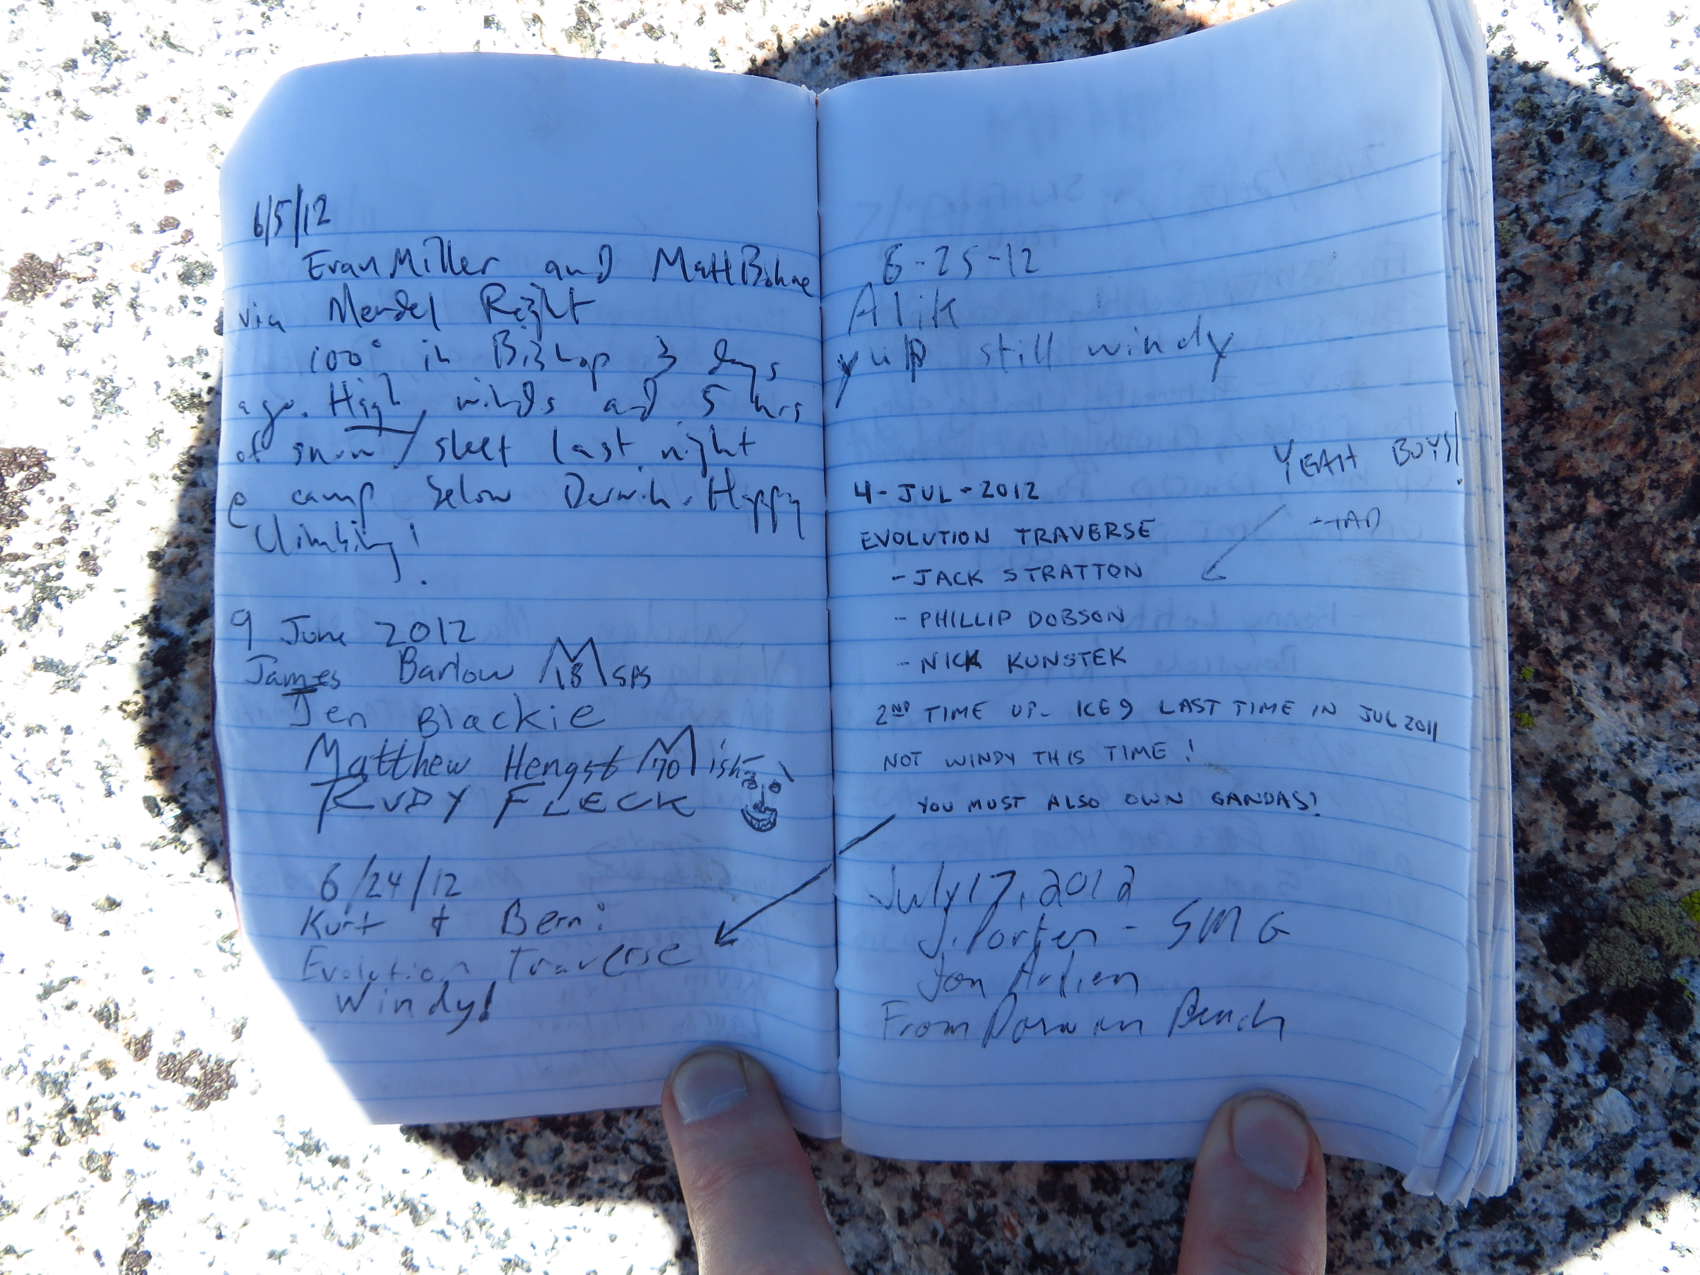 6/5/12
Evan Miller and Matt Bohne
via Mendel Right
100° in Bishop 3 days
ago. High winds and 5 hrs
of snow/sleet last night
@ camp below Darwin. Happy
Climbing!
9 June 2012
James Barlow 18 SPS
Jen Blackie
Matthew Hengst 70 ish
RUDY FLECK
6/24/12
Kurt + Bern
Evolution Traverse
Windy!
6-25-12
Alik
yup still windy
YEAH BOYS!
-TAD
4-JUL-2012
EVOLUTION TRAVERSE
- JACK STRATTON
- PHILLIP DOBSON
- NICK KUNSTEK
2ND TIME UP. ICE 9 LAST TIME IN JUL 2011
NOT WINDY THIS TIME!
YOU MUST ALSO OWN GANDAS!
July 17, 2012
J. Porter - SMG
Jon
From Darwin Bench